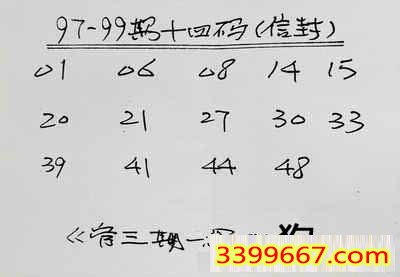 97-99期十四码(信封)
01 06 08 14 15
20 21 27 30 33
39 41 44 48
《管三期一 狗
3399667.com